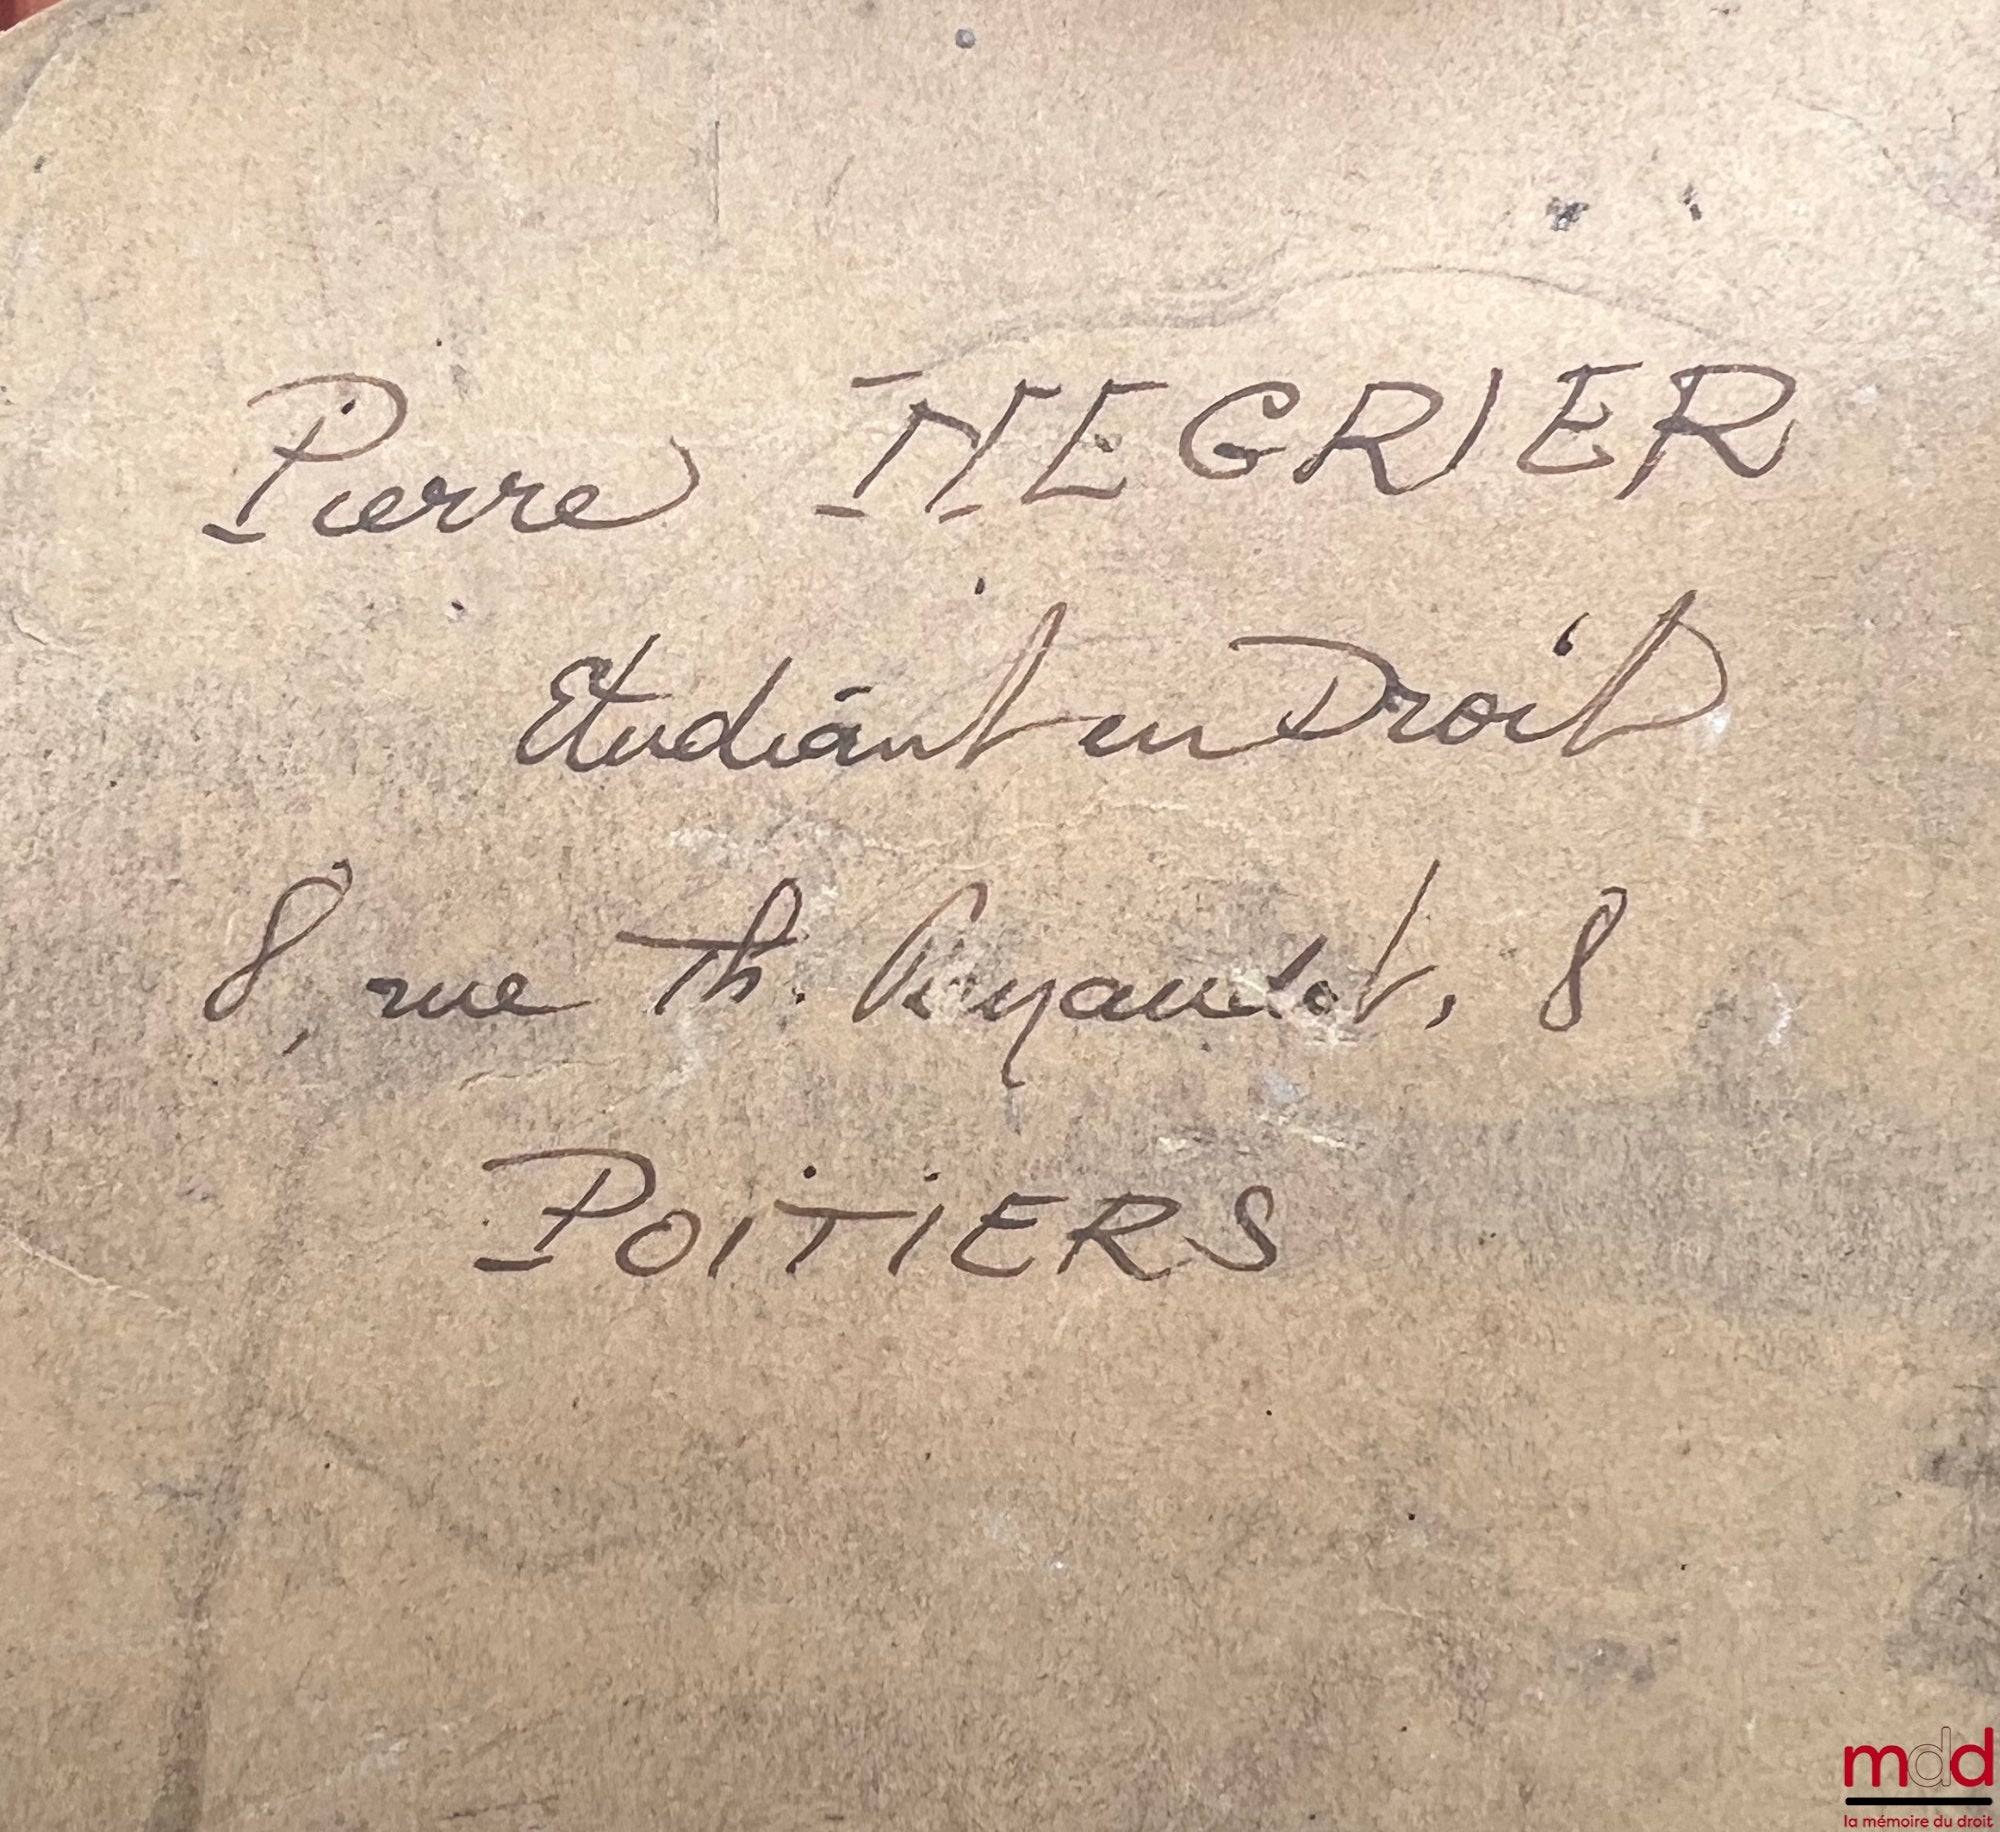 Pierre NEGRIER
Etudiant en Droit
8, rue Th. Renaudot, 8
POITIERS
mdd
la mémoire du droit